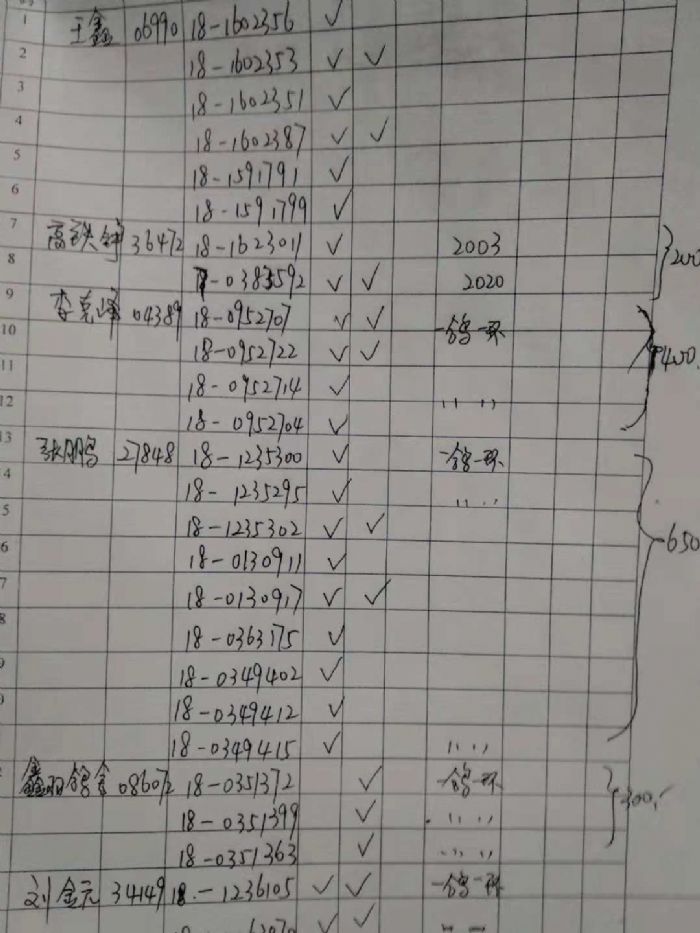 1 王鑫 06990 18-1602356 ✓
2 18-1602353 ✓ ✓
3 18-1602351 ✓
4 18-1602387 ✓ ✓
5 18-1591791 ✓
6 18-1591799 ✓
7 高铁钟 36472 18-1623011 ✓ 2003
200
8 -0383592 ✓ ✓ 2020
9 李克峰 04389 18-0952707 ✓ ✓ 一鸽一环
10 18-0952722 ✓ ✓
400
11 18-0952714 ✓
12 18-0952704 ✓
13 张鹏 27848 18-1235300 ✓ 一鸽一环
4 18-1235295 ✓
5 18-1235302 ✓ ✓
650
6 18-0130911 ✓
7 18-0130917 ✓ ✓
8 18-0363175 ✓
18-0349402 ✓
18-0349412 ✓
18-0349415 ✓
鑫 鸽舍 086072 18-0351372 ✓ 一鸽一环
300
18-0351399 ✓
18-0351363 ✓
刘金元 34149 18-1236105 ✓ ✓ 一鸽一环
✓ ✓